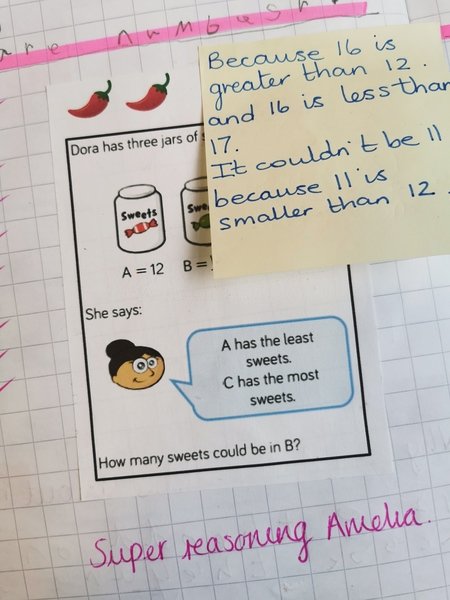 are numbers
Because 16 is
greater than 12.
and 16 is less than
17.
It couldn't be 11
because 11 is
smaller than 12.
Dora has three jars of
Sweets
A = 12 B =
She says:
A has the least
sweets.
C has the most
sweets.
How many sweets could be in B?
Super reasoning Amelia.